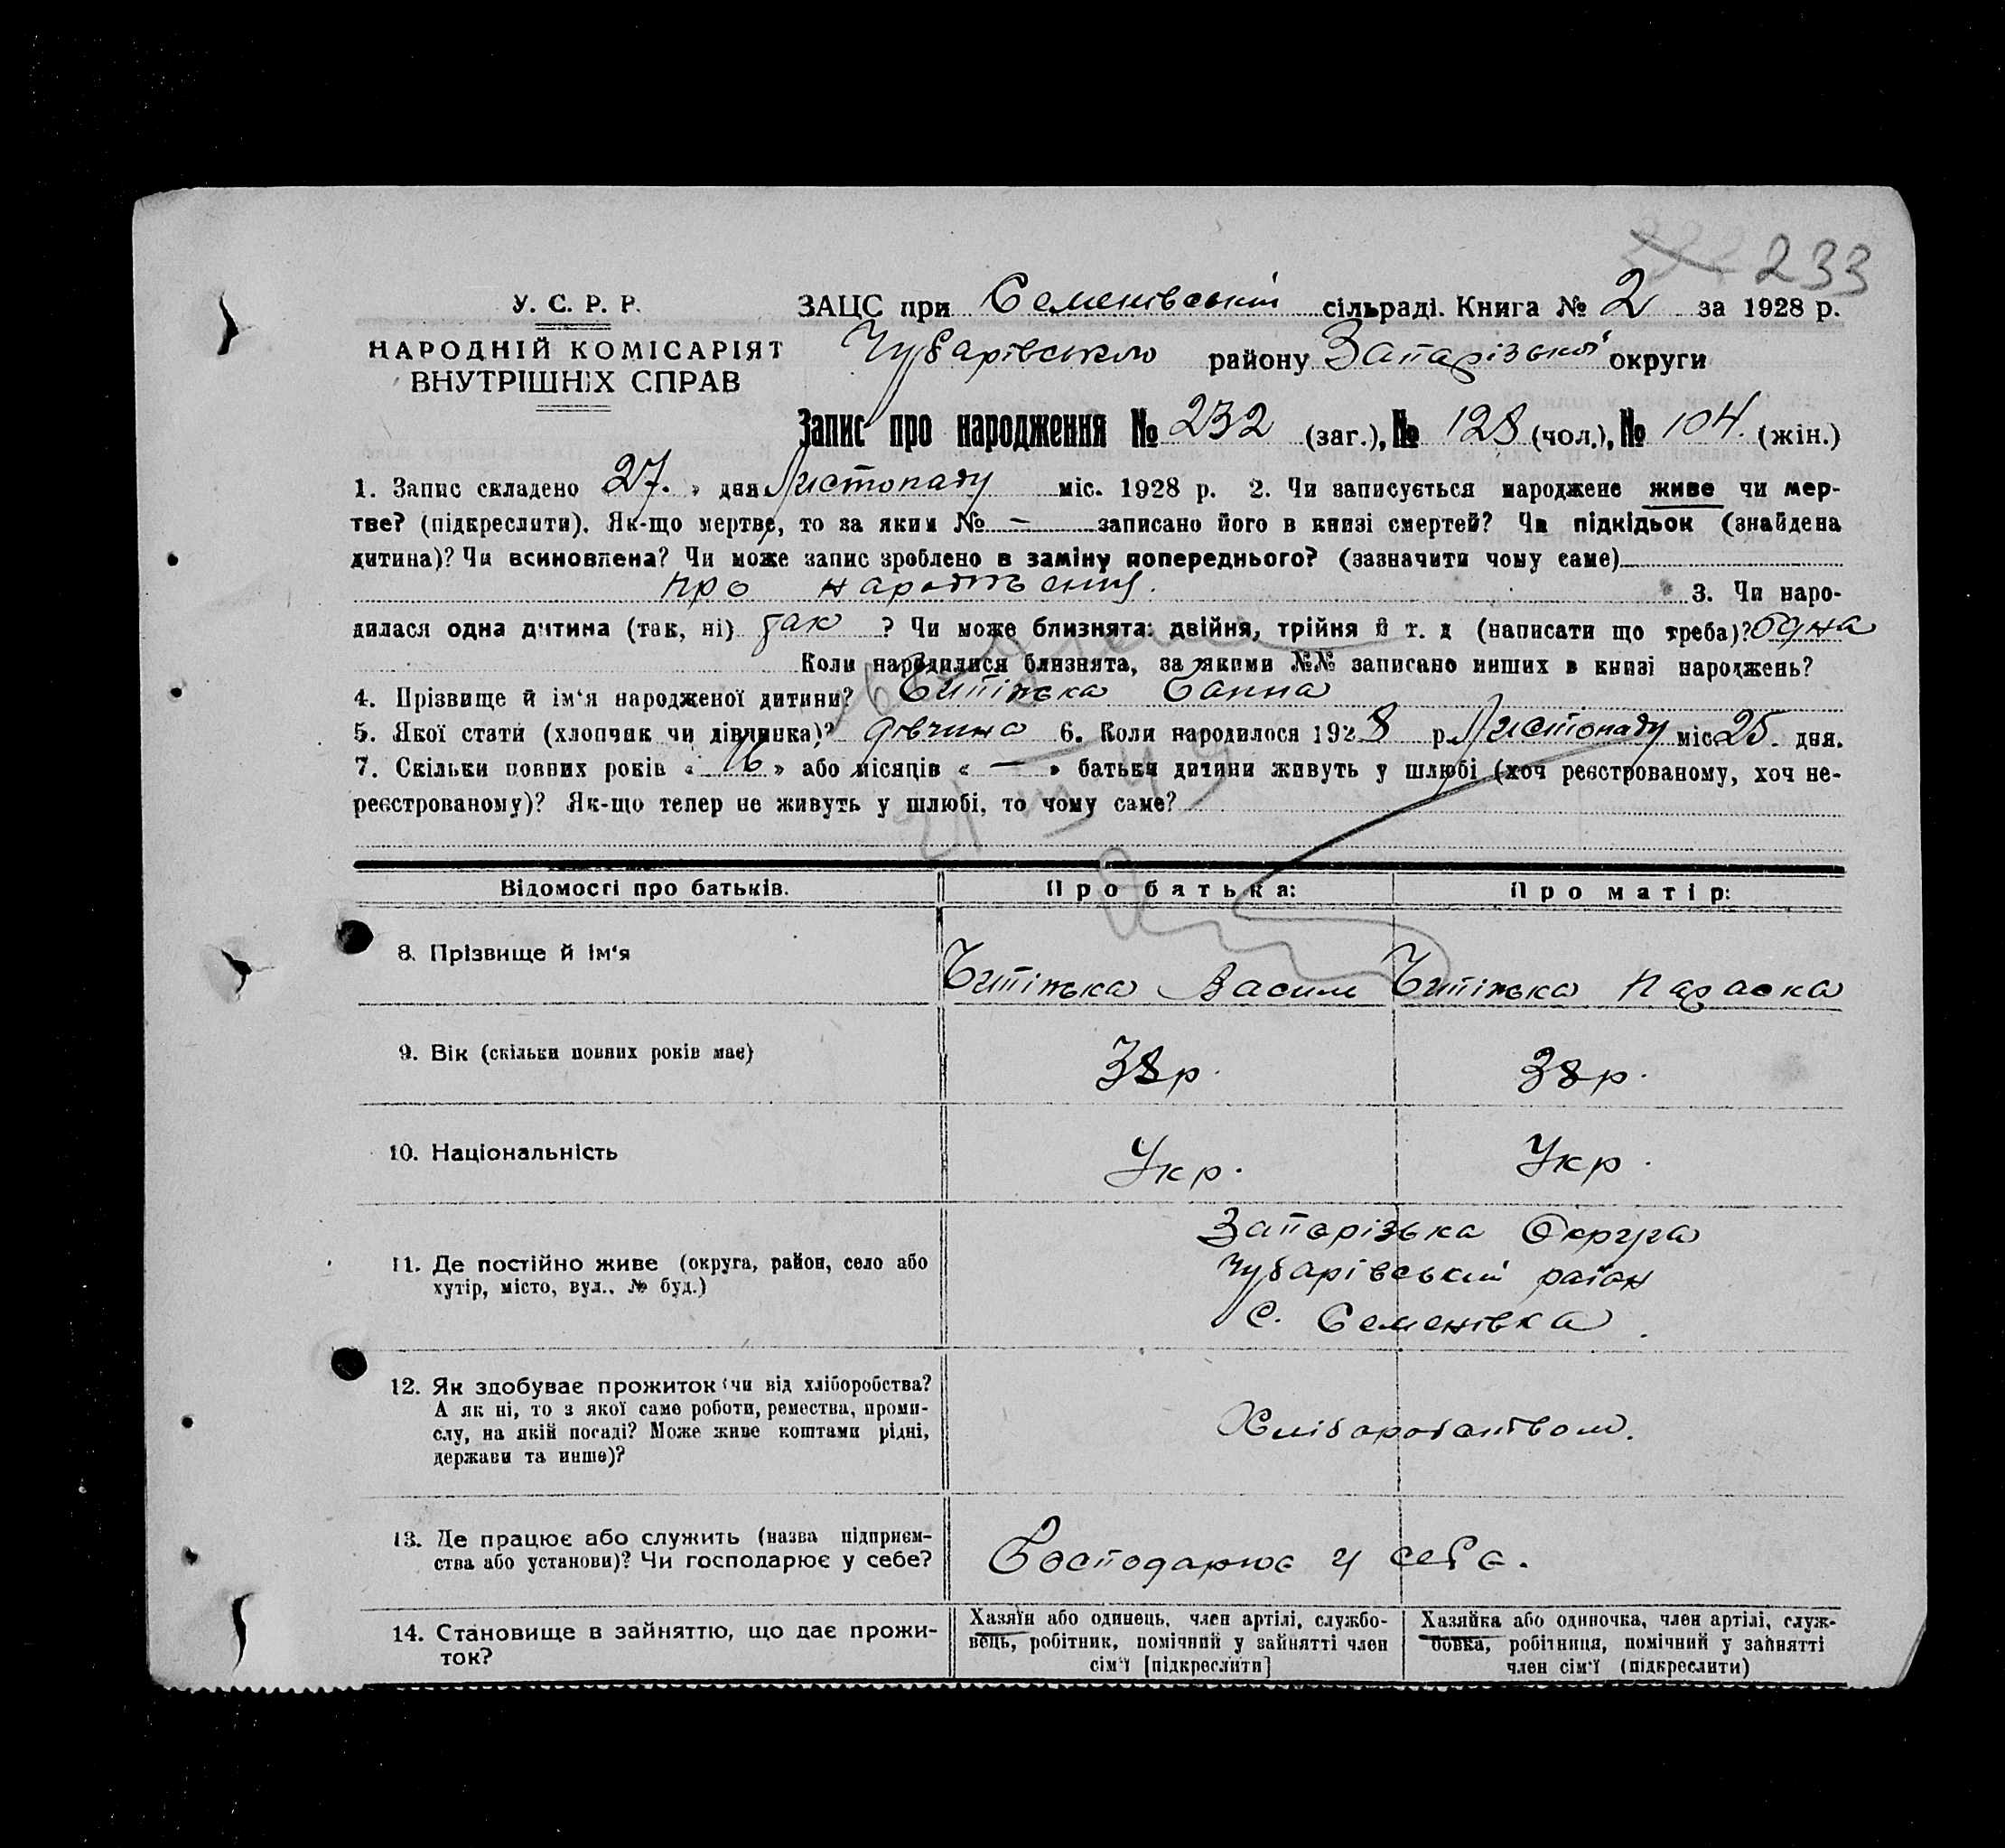 233
У. С. Р. Р.
ЗАЦС при Семенівській сільраді. Книга № 2 за 1928 р.
НАРОДНІЙ КОМІСАРІЯТ
ВНУТРІШНІХ СПРАВ
Чубарівського району Запарізької округи
Запис про народження № 232 (заг.), № 128 (чол.), № 104. (жін.)
1. Запис складено 27. » дня Листопаду міс. 1928 р. 2. Чи записується народжене живе чи мер-
тве? (підкреслити). Як-що мертве, то за яким № — записано його в книзі смертей? Чи підкідьок (знайдена
дитина)? Чи всиновлена? Чи може запис зроблено в заміну попереднього? (зазначити чому саме)
про 3. Чи наро-
дилася одна дитина (так, ні) так ? Чи може близнята: двійня, трійня й т. д (написати що треба)? Одна
Коли народилися близнята, за якими №№ записано инших в книзі народжень?
4. Прізвище й ім'я народженої дитини? Ганна
5. Якої стати (хлопчик чи дівчинка)? дівчина 6. Коли народилося 1928 р. Листопаду міс 25. дня.
7. Скільки повних років « 16 » або місяців « — » батьки дитини живуть у шлюбі (хоч реєстрованому, хоч не-
реєстрованому)? Як-що тепер не живуть у шлюбі, то чому саме?
21 III 49
Відомості про батьків.
Про батька:
Про матір:
8. Прізвище й ім'я
Василь
Параска
9. Вік (скільки повних років має)
38р.
38р.
10. Національність
Укр.
Укр.
11. Де постійно живе (округа, район, село або
хутір, місто, вул.. № буд.)
Запорізька Округа
Чубарівський район
С. Семенівка.
12. Як здобуває прожиток (чи від хліборобства?
А як ні, то з якої саме роботи, ремества, проми-
слу, на якій посаді? Може живе коштами рідні,
держави та инше)?
Хліборобством.
13. Де працює або служить (назва підприєм-
ства або установи)? Чи господарює у себе?
Господарює у себе.
14. Становище в зайняттю, що дає прожи-
ток?
Хазяїн або одинець, член артілі, службо-
вець, робітник, помічний у зайнятті член
сім'ї [підкреслити]
Хазяйка або одиночка, член артілі, служ-
бовка, робітниця, помічний у зайнятті
член сім'ї (підкреслити)